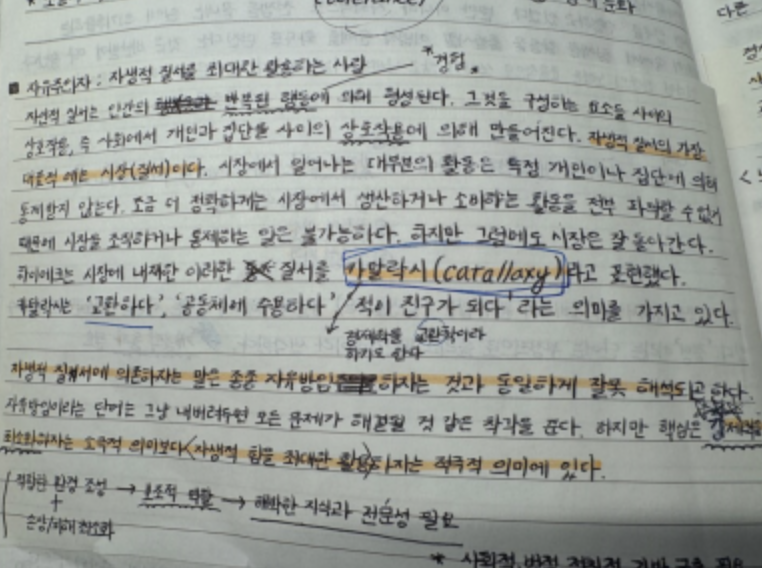 문화
다른
■ 자유주의자 : 자생적 질서를 최대한 활용하는 사람
*경험*
자생적 질서는 인간의 반복된 행동에 의해 형성된다. 그것을 구성하는 요소들 사이의
상호작용, 즉 사회에서 개인과 집단들 사이의 상호작용에 의해 만들어진다. 자생적 질서의 가장
대표적 예는 시장(질서)이다. 시장에서 일어나는 대부분의 활동은 특정 개인이나 집단에 의해
통제받지 않는다. 조금 더 정확하게는 시장에서 생산하거나 소비하는 활동을 전부 파악할 수 없기
때문에 시장을 조직하거나 통제하는 일은 불가능하다. 하지만 그럼에도 시장은 잘 돌아간다.
하이에크는 시장에 내재한 이러한 질서를 카탈락시(catallaxy)라고 표현했다.
카탈락시는 '교환하다', '공동체에 수용하다' '적이 친구가 되다'라는 의미를 가지고 있다.
경제학을 교환학이라
하기도 한다
자생적 질서에 의존하자는 말은 종종 자유방임하자는 것과 동일하게 잘못 해석되곤 하다.
자유방임이라는 단어는 그냥 내버려두면 모든 문제가 해결될 것 같은 착각을 준다. 하지만 핵심은 강제력을
최소화하자는 소극적 의미보다 자생적 힘을 최대한 활용하자는 적극적 의미에 있다.
적합한 환경 조성 → 보조적 역할 → 해박한 지식과 전문성 필요
+
손상/피해 최소화
* 사회적, 법적